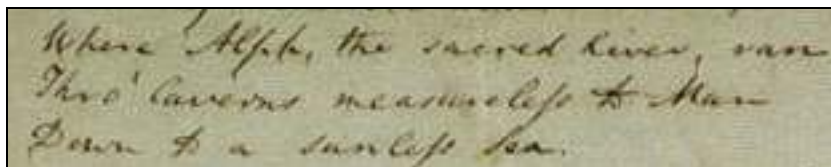 Where Alph, the sacred River, ran
Thro' Caverns measureless to Man
Down to a sunless Sea.